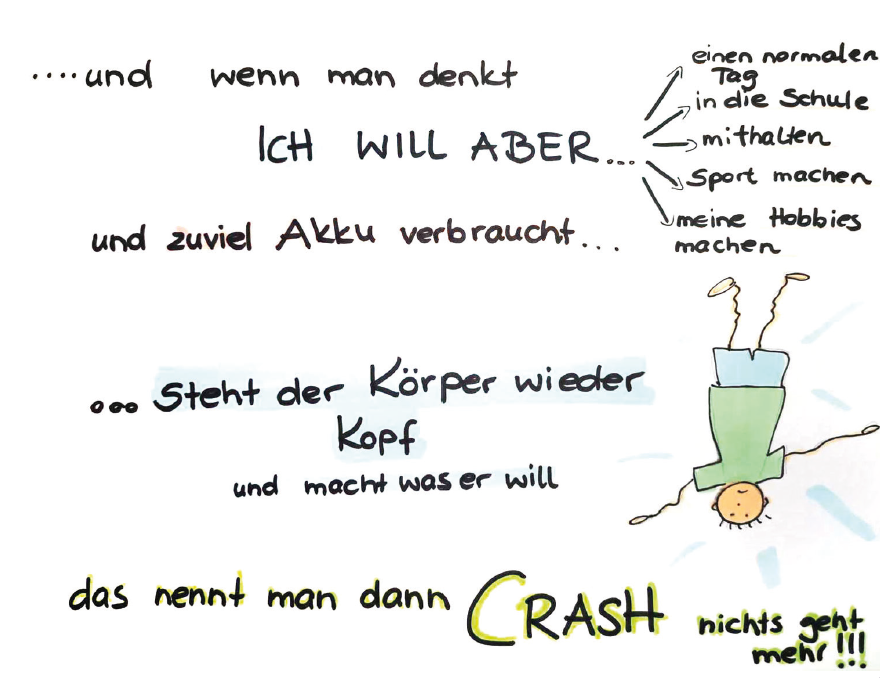 ....und wenn man denkt
ICH WILL ABER...
einen normalen
Tag
in die Schule
mithalten
Sport machen
meine Hobbies
machen
und zuviel Akku verbraucht...
... steht der Körper wieder
Kopf
und macht was er will
das nennt man dann CRASH nichts geht
mehr!!!